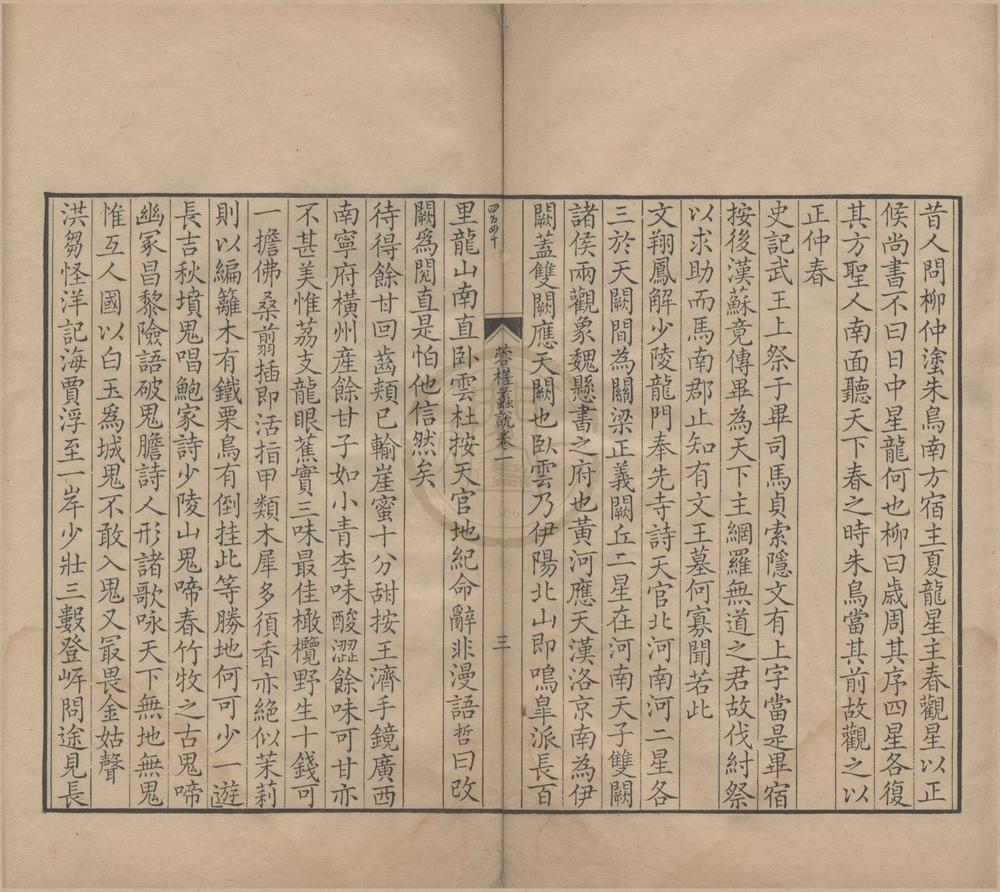 昔人問柳仲塗朱鳥南方宿主夏龍星主春觀星以正
候尚書不曰日中星龍何也柳曰歲周其序四星各復
其方聖人南面聽天下春之時朱鳥當其前故觀之以
正仲春
史記武王上祭于畢司馬貞索隱文有上字當是畢宿
按後漢蘇竟傳畢為天下主網羅無道之君故伐紂祭
以求助而馬南郡止知有文王墓何寡聞若此
文翔鳳解少陵龍門奉先寺詩天官北河南河二星各
三於天闕間為關梁正義闕丘二星在河南天子雙闕
諸侯兩觀象魏懸書之府也黃河應天漢洛京南為伊
闕蓋雙闕應天闕也臥雲乃伊陽北山即鳴皐派長百
四百四十
蓉槎蠡說卷一
三
里龍山南直臥雲杜按天官地紀命辭非漫語哲曰改
闕爲閱直是怕他信然矣
待得餘甘回齒頰已輸崖蜜十分甜按王濟手鏡廣西
南寧府橫州産餘甘子如小青李味酸澀餘味可甘亦
不甚美惟荔支龍眼蕉實三味最佳橄欖野生十錢可
一擔佛桑翦插即活指甲類木犀多須香亦絕似茉莉
則以編籬木有鐵栗鳥有倒挂此等勝地何可少一遊
長吉秋墳鬼唱鮑家詩少陵山鬼啼春竹牧之古鬼啼
幽冢昌黎險語破鬼膽詩人形諸歌咏天下無地無鬼
惟互人國以白玉爲城鬼不敢入鬼又冣畏金姑聲
洪芻怪洋記海賈浮至一岸少壯三數登岸問途見長